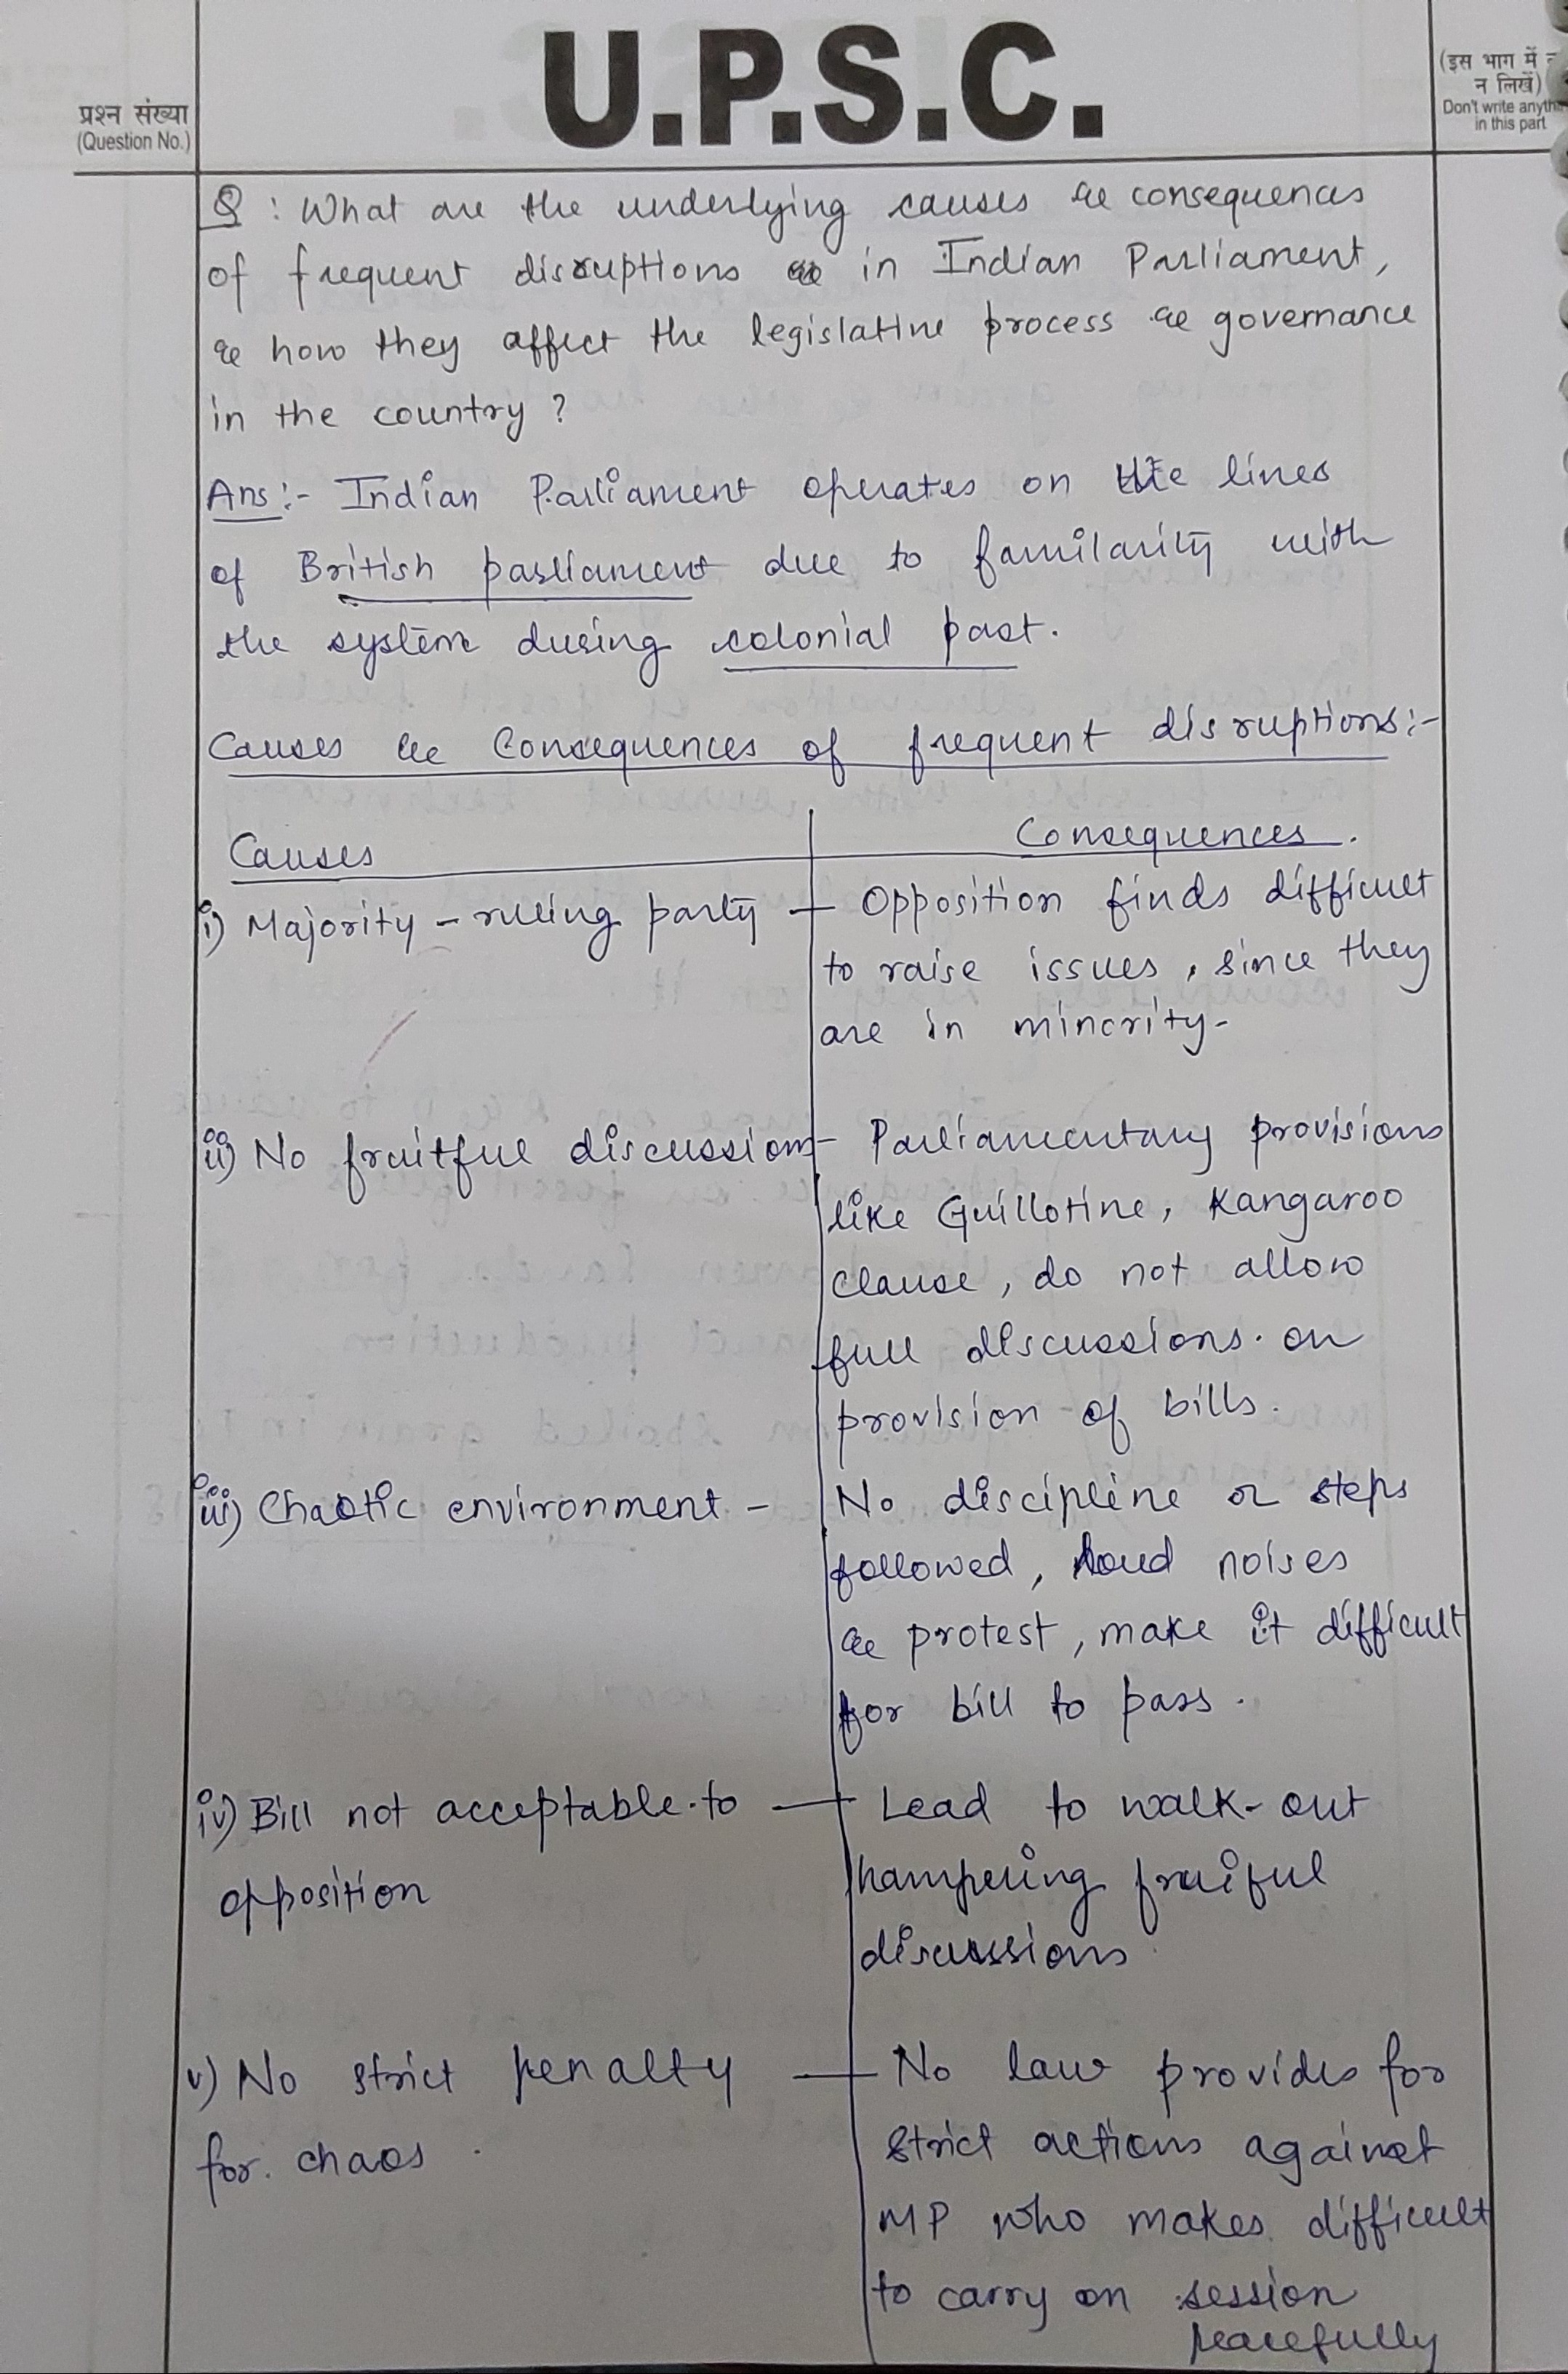 U.P.S.C.
प्रश्न संख्या
(Question No.)
(इस भाग में
न लिखें)
Don't write anyth
in this part
Q : What are the underlying causes & consequences
of frequent disruptions in Indian Parliament,
& how they affect the legislative process & governance
in the country ?
Ans :- Indian Parliament operates on the lines
of British parliament due to familarity with
the system during colonial past.
Causes & Consequences of frequent disruptions :-
Causes
Consequences.
i) Majority - ruling party -
Opposition finds difficult
to raise issues, since they
are in minority-
ii) No fruitful discussions -
Parliamentary provisions
like Guillotine, Kangaroo
clause, do not allow
full discussions on
provision of bills.
iii) Chaotic environment -
No discipline or steps
followed, loud noises
& protest, make it difficult
for bill to pass.
iv) Bill not acceptable to -
opposition
Lead to walk-out
hampering fruiful
discussions
v) No strict penalty -
for chaos
No law provides for
strict actions against
MP who makes difficult
to carry on session
peacefully